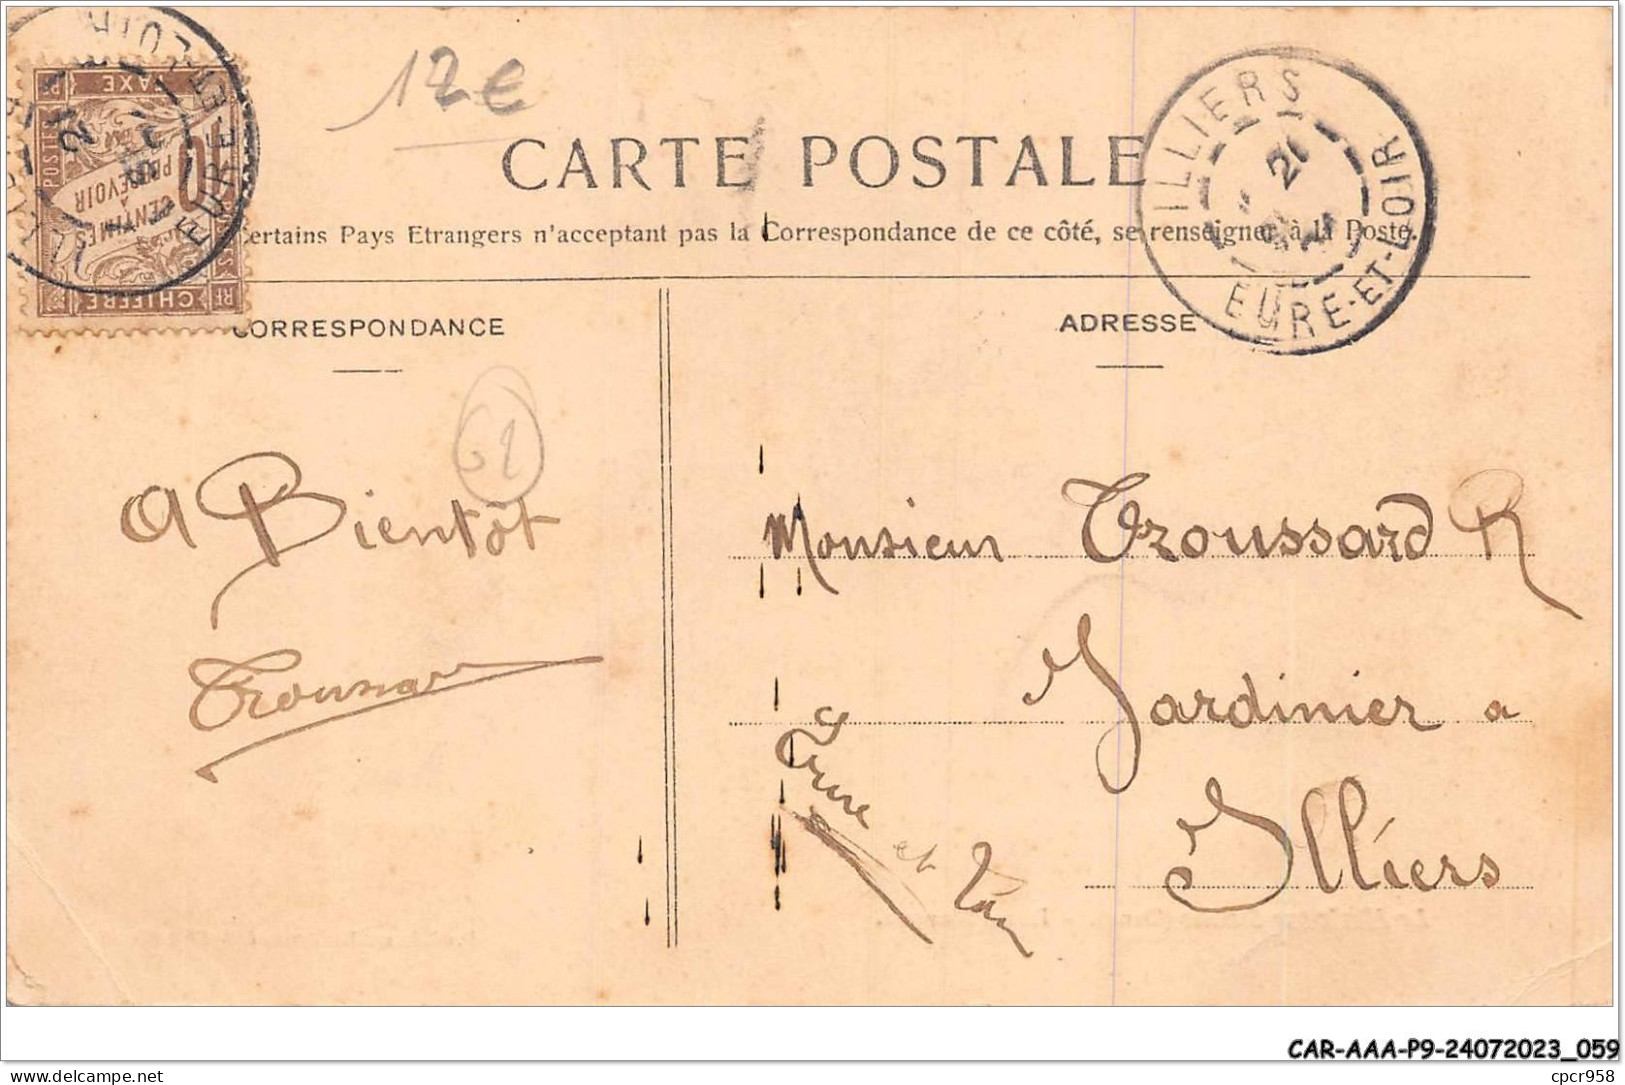 12€
CARTE POSTALE
Certains Pays Etrangers n'acceptant pas la Correspondance de ce côté, se renseigner à la Poste.
ILLIERS
21
EURE-ET-LOIR
CHIFFRE
TAXE
POSTES
CENTIMES
À
PERCEVOIR
RF
21
EURE-ET-LOIR
CORRESPONDANCE
ADRESSE
62
A Bientôt
Troussard
Monsieur Troussard R
Jardinier a
Illiers
Eure et Loir
CAR-AAA-P9-24072023_059
cpcr958